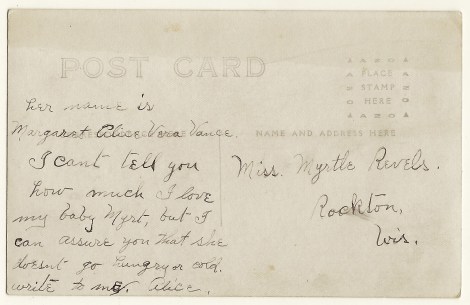 POST CARD
AZO
PLACE
STAMP
HERE
AZO
her name is
Margaret Alice Vera Vance.
NAME AND ADDRESS HERE
I cant tell you
how much I love
my baby Myrt, but I
can assure you that she
doesnt go hungry or cold.
write to me. Alice.
Miss. Myrtle Revels.
Rockton,
Wis.